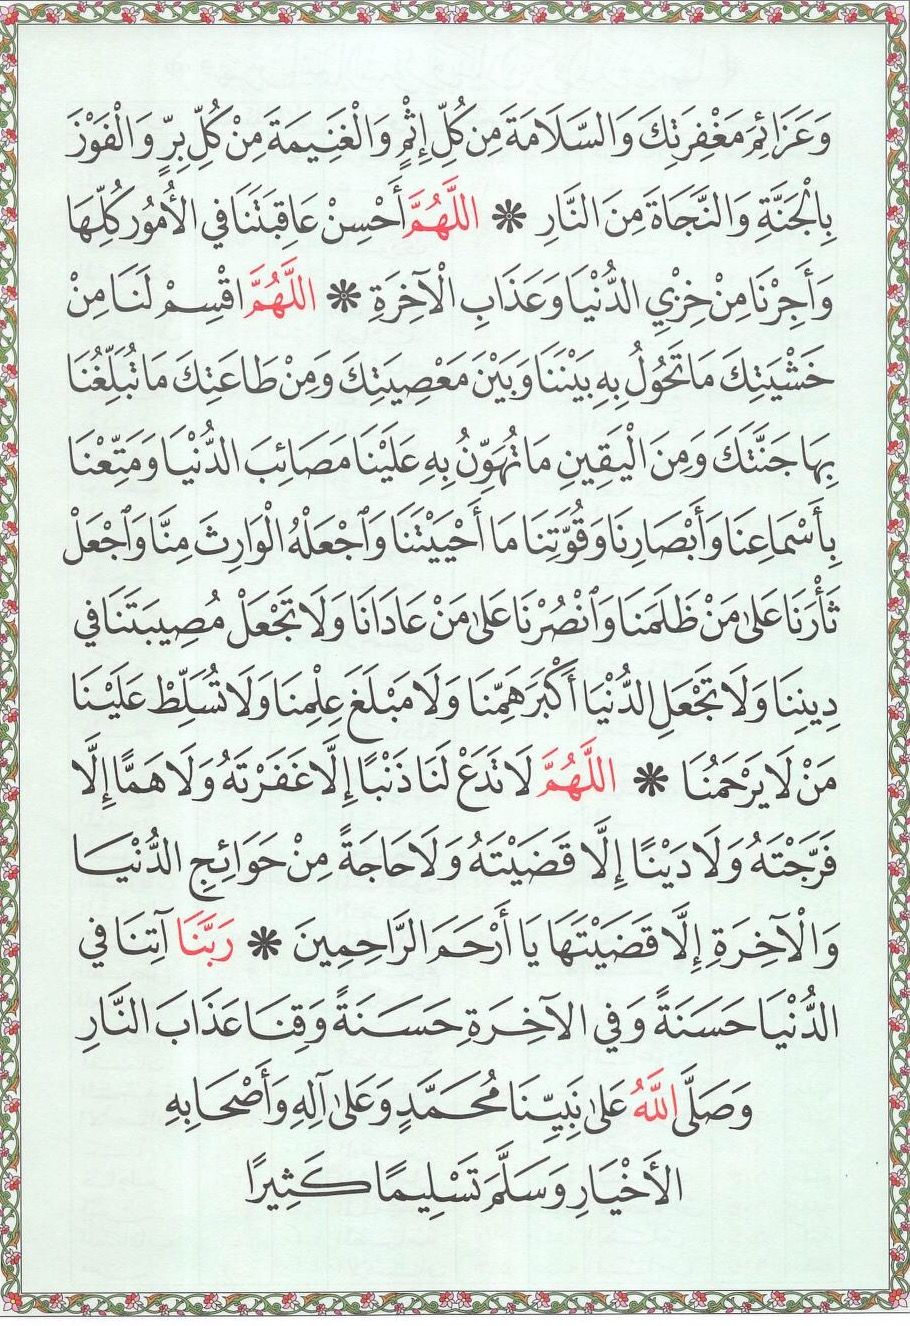 وَعَزَائِمَ مَغْفِرَتِكَ وَالسَّلَامَةَ مِن كُلِّ إِثْمٍ وَالْغَنِيمَةَ مِنْ كُلِّ بِرٍّ وَالْفَوْزَ
بِالْجَنَّةِ وَالنَّجَاةَ مِنَ النَّارِ ❋ اللَّهُمَّ أَحْسِنْ عَاقِبَتَنَا فِي الأُمُورِ كُلِّهَا
وَأَجِرْنَا مِنْ خِزْيِ الدُّنْيَا وَعَذَابِ الْآخِرَةِ ❋ اللَّهُمَّ اقْسِمْ لَنَا مِنْ
خَشْيَتِكَ مَا تَحُولُ بِهِ بَيْنَنَا وَبَيْنَ مَعْصِيَتِكَ وَمِنْ طَاعَتِكَ مَا تُبَلِّغُنَا
بِهَا جَنَّتَكَ وَمِنَ الْيَقِينِ مَا تُهَوِّنُ بِهِ عَلَيْنَا مَصَائِبَ الدُّنْيَا وَمَتِّعْنَا
بِأَسْمَاعِنَا وَأَبْصَارِنَا وَقُوَّتِنَا مَا أَحْيَيْتَنَا وَٱجْعَلْهُ الْوَارِثَ مِنَّا وَٱجْعَلْ
ثَأْرَنَا عَلَىٰ مَنْ ظَلَمَنَا وَٱنْصُرْنَا عَلَىٰ مَنْ عَادَانَا وَلَا تَجْعَلْ مُصِيبَتَنَا فِي
دِينِنَا وَلَا تَجْعَلِ الدُّنْيَا أَكْبَرَ هَمِّنَا وَلَا مَبْلَغَ عِلْمِنَا وَلَا تُسَلِّطْ عَلَيْنَا
مَنْ لَا يَرْحَمُنَا ❋ اللَّهُمَّ لَا تَدَعْ لَنَا ذَنْبًا إِلَّا غَفَرْتَهُ وَلَا هَمًّا إِلَّا
فَرَّجْتَهُ وَلَا دَيْنًا إِلَّا قَضَيْتَهُ وَلَا حَاجَةً مِنْ حَوَائِجِ الدُّنْيَا
وَالْآخِرَةِ إِلَّا قَضَيْتَهَا يَا أَرْحَمَ الرَّاحِمِينَ ❋ رَبَّنَا آتِنَا فِي
الدُّنْيَا حَسَنَةً وَفِي الآخِرَةِ حَسَنَةً وَقِنَا عَذَابَ النَّارِ
وَصَلَّى اللَّهُ عَلَىٰ نَبِيِّنَا مُحَمَّدٍ وَعَلَىٰ آلِهِ وَأَصْحَابِهِ
الأَخْيَارِ وَسَلَّمَ تَسْلِيمًا كَثِيرًا